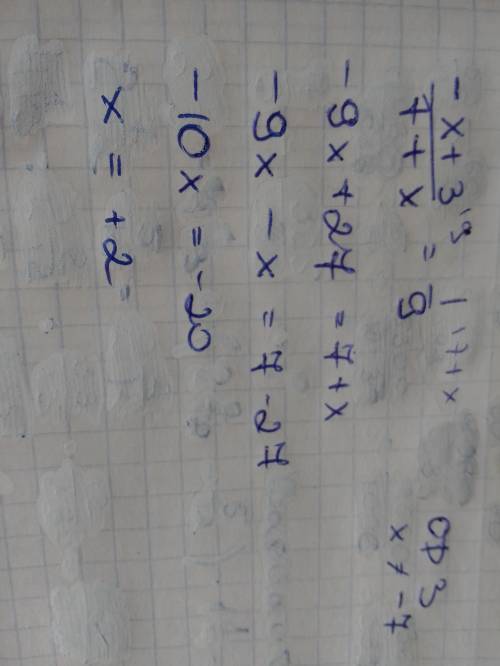 (-x + 3)/(7 + x) \9 = 1/9 \7+x
ОДЗ
x ≠ -7
-9x + 27 = 7 + x
-9x - x = 7 - 27
-10x = -20
x = +2